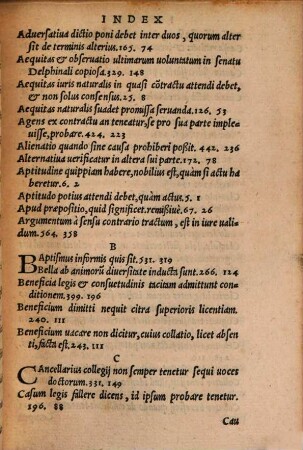 INDEX
Aduersatiua dictio poni debet inter duos, quorum alter
sit de terminis alterius.165. 74
Aequitas & obseruatio ultimarum uoluntatum in senatu
Delphinali copiosa.329. 148
Aequitas iuris naturalis in quasi cōtractu attendi debet,
& non solus consensus.25. 8
Aequitas naturalis suadet promissa seruanda.126. 53
Agens ex contractu an teneatur, se pro sua parte imple-
uisse, probare.424. 223
Alienatio quando sine causa prohiberi possit. 442. 236
Alternatiua uerificatur in altera sui parte.172. 78
Aptitudine quippiam habere, nobilius est, quàm si actu ha
beretur.6. 2
Aptitudo potius attendi debet, quàm actus.5. 1
Apud præpositio, quid significet.remissiuè.67. 26
Argumentum à sensu contrario tractum, est in iure uali-
dum.564. 358
B
BAptismus informis quis sit.531. 319
Bella ab animorū diuersitate inducta sunt.266. 124
Beneficia legis & consuetudinis tacitum admittunt con-
ditionem.399. 196
Beneficium dimitti nequit citra superioris licentiam.
240. 111
Beneficium uacare non dicitur, cuius collatio, licet absen
ti, facta est.243. 111
C
CAncellarius collegij non semper tenetur sequi uoces
doctorum.331. 149
Casum legis fillere dicens, id ipsum probare tenetur.
196. 88
Cau